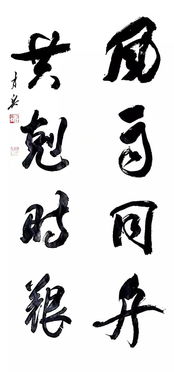 風雨同舟
共剋時艱